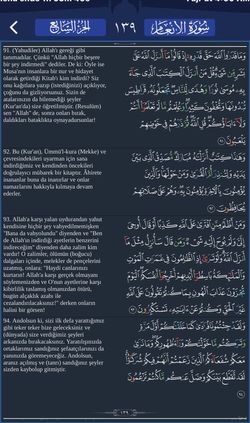 سُورَةُ الأَنْعَامِ
١٣٩
الجزء السابع
91. (Yahudiler) Allah'ı gereği gibi
tanımadılar. Çünkü "Allah hiçbir beşere
bir şey indirmedi" dediler. De ki: Öyle ise
Musa'nın insanlara bir nur ve hidayet
olarak getirdiği Kitab'ı kim indirdi? Siz
onu kağıtlara yazıp (istediğinizi) açıklıyor,
çoğunu da gizliyorsunuz. Sizin de
atalarınızın da bilemediği şeyler
(Kur'an'da) size öğretilmiştir. (Resulüm)
sen "Allah" de, sonra onları bırak,
daldıkları bataklıkta oynayadursunlar!
وَمَا قَدَرُوا اللَّهَ حَقَّ قَدْرِهِ إِذْ قَالُوا مَا أَنْزَلَ اللَّهُ عَلَى
بَشَرٍ مِنْ شَيْءٍ قُلْ مَنْ أَنْزَلَ الْكِتَابَ الَّذِي جَاءَ
بِهِ مُوسَى نُورًا وَهُدًى لِلنَّاسِ تَجْعَلُونَهُ قَرَاطِيسَ
تُبْدُونَهَا وَتُخْفُونَ كَثِيرًا وَعُلِّمْتُمْ مَا لَمْ تَعْلَمُوا أَنْتُمْ
وَلَا آبَاؤُكُمْ قُلِ اللَّهُ ثُمَّ ذَرْهُمْ فِي خَوْضِهِمْ
يَلْعَبُونَ ٩١
92. Bu (Kur'an), Ümmü'l-kura (Mekke) ve
çevresindekileri uyarman için sana
indirdiğimiz ve kendinden öncekileri
doğrulayıcı mübarek bir kitaptır. Ahirete
inananlar buna da inanırlar ve onlar
namazlarını hakkıyla kılmaya devam
ederler.
وَهَذَا كِتَابٌ أَنْزَلْنَاهُ مُبَارَكٌ مُصَدِّقُ الَّذِي بَيْنَ
يَدَيْهِ وَلِتُنْذِرَ أُمَّ الْقُرَى وَمَنْ حَوْلَهَا وَالَّذِينَ
يُؤْمِنُونَ بِالْآخِرَةِ يُؤْمِنُونَ بِهِ وَهُمْ عَلَى صَلَاتِهِمْ
يُحَافِظُونَ ٩٢
93. Allah'a karşı yalan uydurandan yahut
kendisine hiçbir şey vahyedilmemişken
"Bana da vahyolundu" diyenden ve "Ben
de Allah'ın indirdiği ayetlerin benzerini
indireceğim" diyenden daha zalim kim
vardır! O zalimler, ölümün (boğucu)
dalgaları içinde, melekler de pençelerini
uzatmış, onlara: "Haydi canlarınızı
kurtarın! Allah'a karşı gerçek olmayanı
söylemenizden ve O'nun ayetlerine karşı
kibirlilik taslamış olmanızdan ötürü,
bugün alçaklık azabı ile
cezalandırılacaksınız!" derken onların
halini bir görsen!
وَمَنْ أَظْلَمُ مِمَّنِ افْتَرَى عَلَى اللَّهِ كَذِبًا أَوْ قَالَ أُوحِيَ
إِلَيَّ وَلَمْ يُوحَ إِلَيْهِ شَيْءٌ وَمَنْ قَالَ سَأُنْزِلُ مِثْلَ مَا
أَنْزَلَ اللَّهُ وَلَوْ تَرَى إِذِ الظَّالِمُونَ فِي غَمَرَاتِ الْمَوْتِ
وَالْمَلَائِكَةُ بَاسِطُو أَيْدِيهِمْ أَخْرِجُوا أَنْفُسَكُمُ الْيَوْمَ
تُجْزَوْنَ عَذَابَ الْهُونِ بِمَا كُنْتُمْ تَقُولُونَ عَلَى اللَّهِ
غَيْرَ الْحَقِّ وَكُنْتُمْ عَنْ آيَاتِهِ تَسْتَكْبِرُونَ ٩٣
94. Andolsun ki, sizi ilk defa yarattığımız
gibi teker teker bize geleceksiniz ve
(dünyada) size verdiğimiz şeyleri
arkanızda bırakacaksınız. Yaratılışınızda
ortaklarımız sandığınız şefaatçılarınızı da
yanınızda göremeyeceğiz. Andolsun,
aranız açılmış ve (tanrı) sandığınız şeyler
sizden kaybolup gitmiştir.
وَلَقَدْ جِئْتُمُونَا فُرَادَى كَمَا خَلَقْنَاكُمْ أَوَّلَ مَرَّةٍ
وَتَرَكْتُمْ مَا خَوَّلْنَاكُمْ وَرَاءَ ظُهُورِكُمْ وَمَا نَرَى
مَعَكُمْ شُفَعَاءَكُمُ الَّذِينَ زَعَمْتُمْ أَنَّهُمْ فِيكُمْ شُرَكَاءُ
لَقَدْ تَقَطَّعَ بَيْنَكُمْ وَضَلَّ عَنْكُمْ مَا كُنْتُمْ تَزْعُمُونَ
٩٤
١٣٩